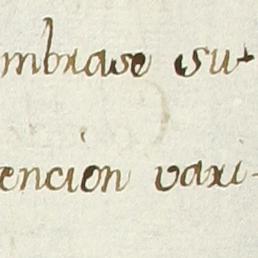 mbrase su-
encion vari-